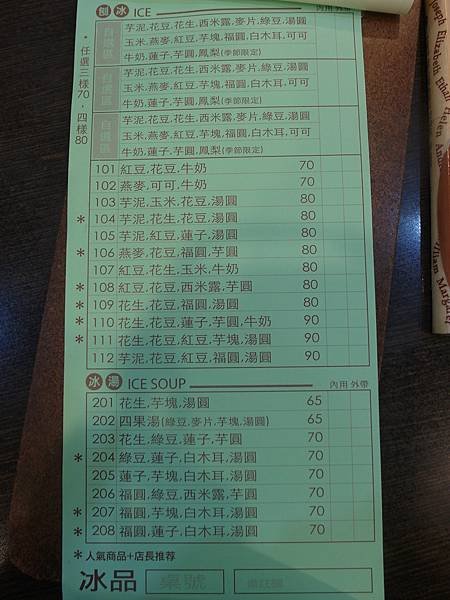 刨冰 ICE 內用 外帶
*任選三樣70,四樣80
自選區
芋泥,花豆,花生,西米露,麥片,綠豆,湯圓
玉米,燕麥,紅豆,芋塊,福圓,白木耳,可可
牛奶,蓮子,芋圓,鳳梨(季節限定)
自選區
芋泥,花豆,花生,西米露,麥片,綠豆,湯圓
玉米,燕麥,紅豆,芋塊,福圓,白木耳,可可
牛奶,蓮子,芋圓,鳳梨(季節限定)
自選區
芋泥,花豆,花生,西米露,麥片,綠豆,湯圓
玉米,燕麥,紅豆,芋塊,福圓,白木耳,可可
牛奶,蓮子,芋圓,鳳梨(季節限定)
101 紅豆,花豆,牛奶 70
102 燕麥,可可,牛奶 70
103 芋泥,玉米,花豆,湯圓 80
*104 芋泥,花生,花豆,湯圓 80
105 芋泥,紅豆,蓮子,湯圓 80
*106 燕麥,花豆,福圓,芋圓 80
107 紅豆,花生,玉米,牛奶 80
*108 紅豆,花豆,西米露,芋圓 80
*109 花生,花豆,福圓,湯圓 80
*110 花生,花豆,蓮子,芋圓,牛奶 90
*111 花生,花豆,紅豆,芋塊,湯圓 90
112 芋泥,花豆,紅豆,福圓,湯圓 90
冰湯 ICE SOUP 內用 外帶
201 花生,芋塊,湯圓 65
202 四果湯(綠豆,麥片,芋塊,湯圓) 65
203 花生,綠豆,蓮子,芋圓 70
*204 綠豆,蓮子,白木耳,湯圓 70
205 蓮子,芋塊,白木耳,湯圓 70
206 福圓,綠豆,西米露,芋圓 70
*207 福圓,芋塊,白木耳,湯圓 70
*208 福圓,蓮子,白木耳,湯圓 70
*人氣商品+店長推荐
冰品 桌號
Joseph Elizabeth Ethan Helen
William Margaret